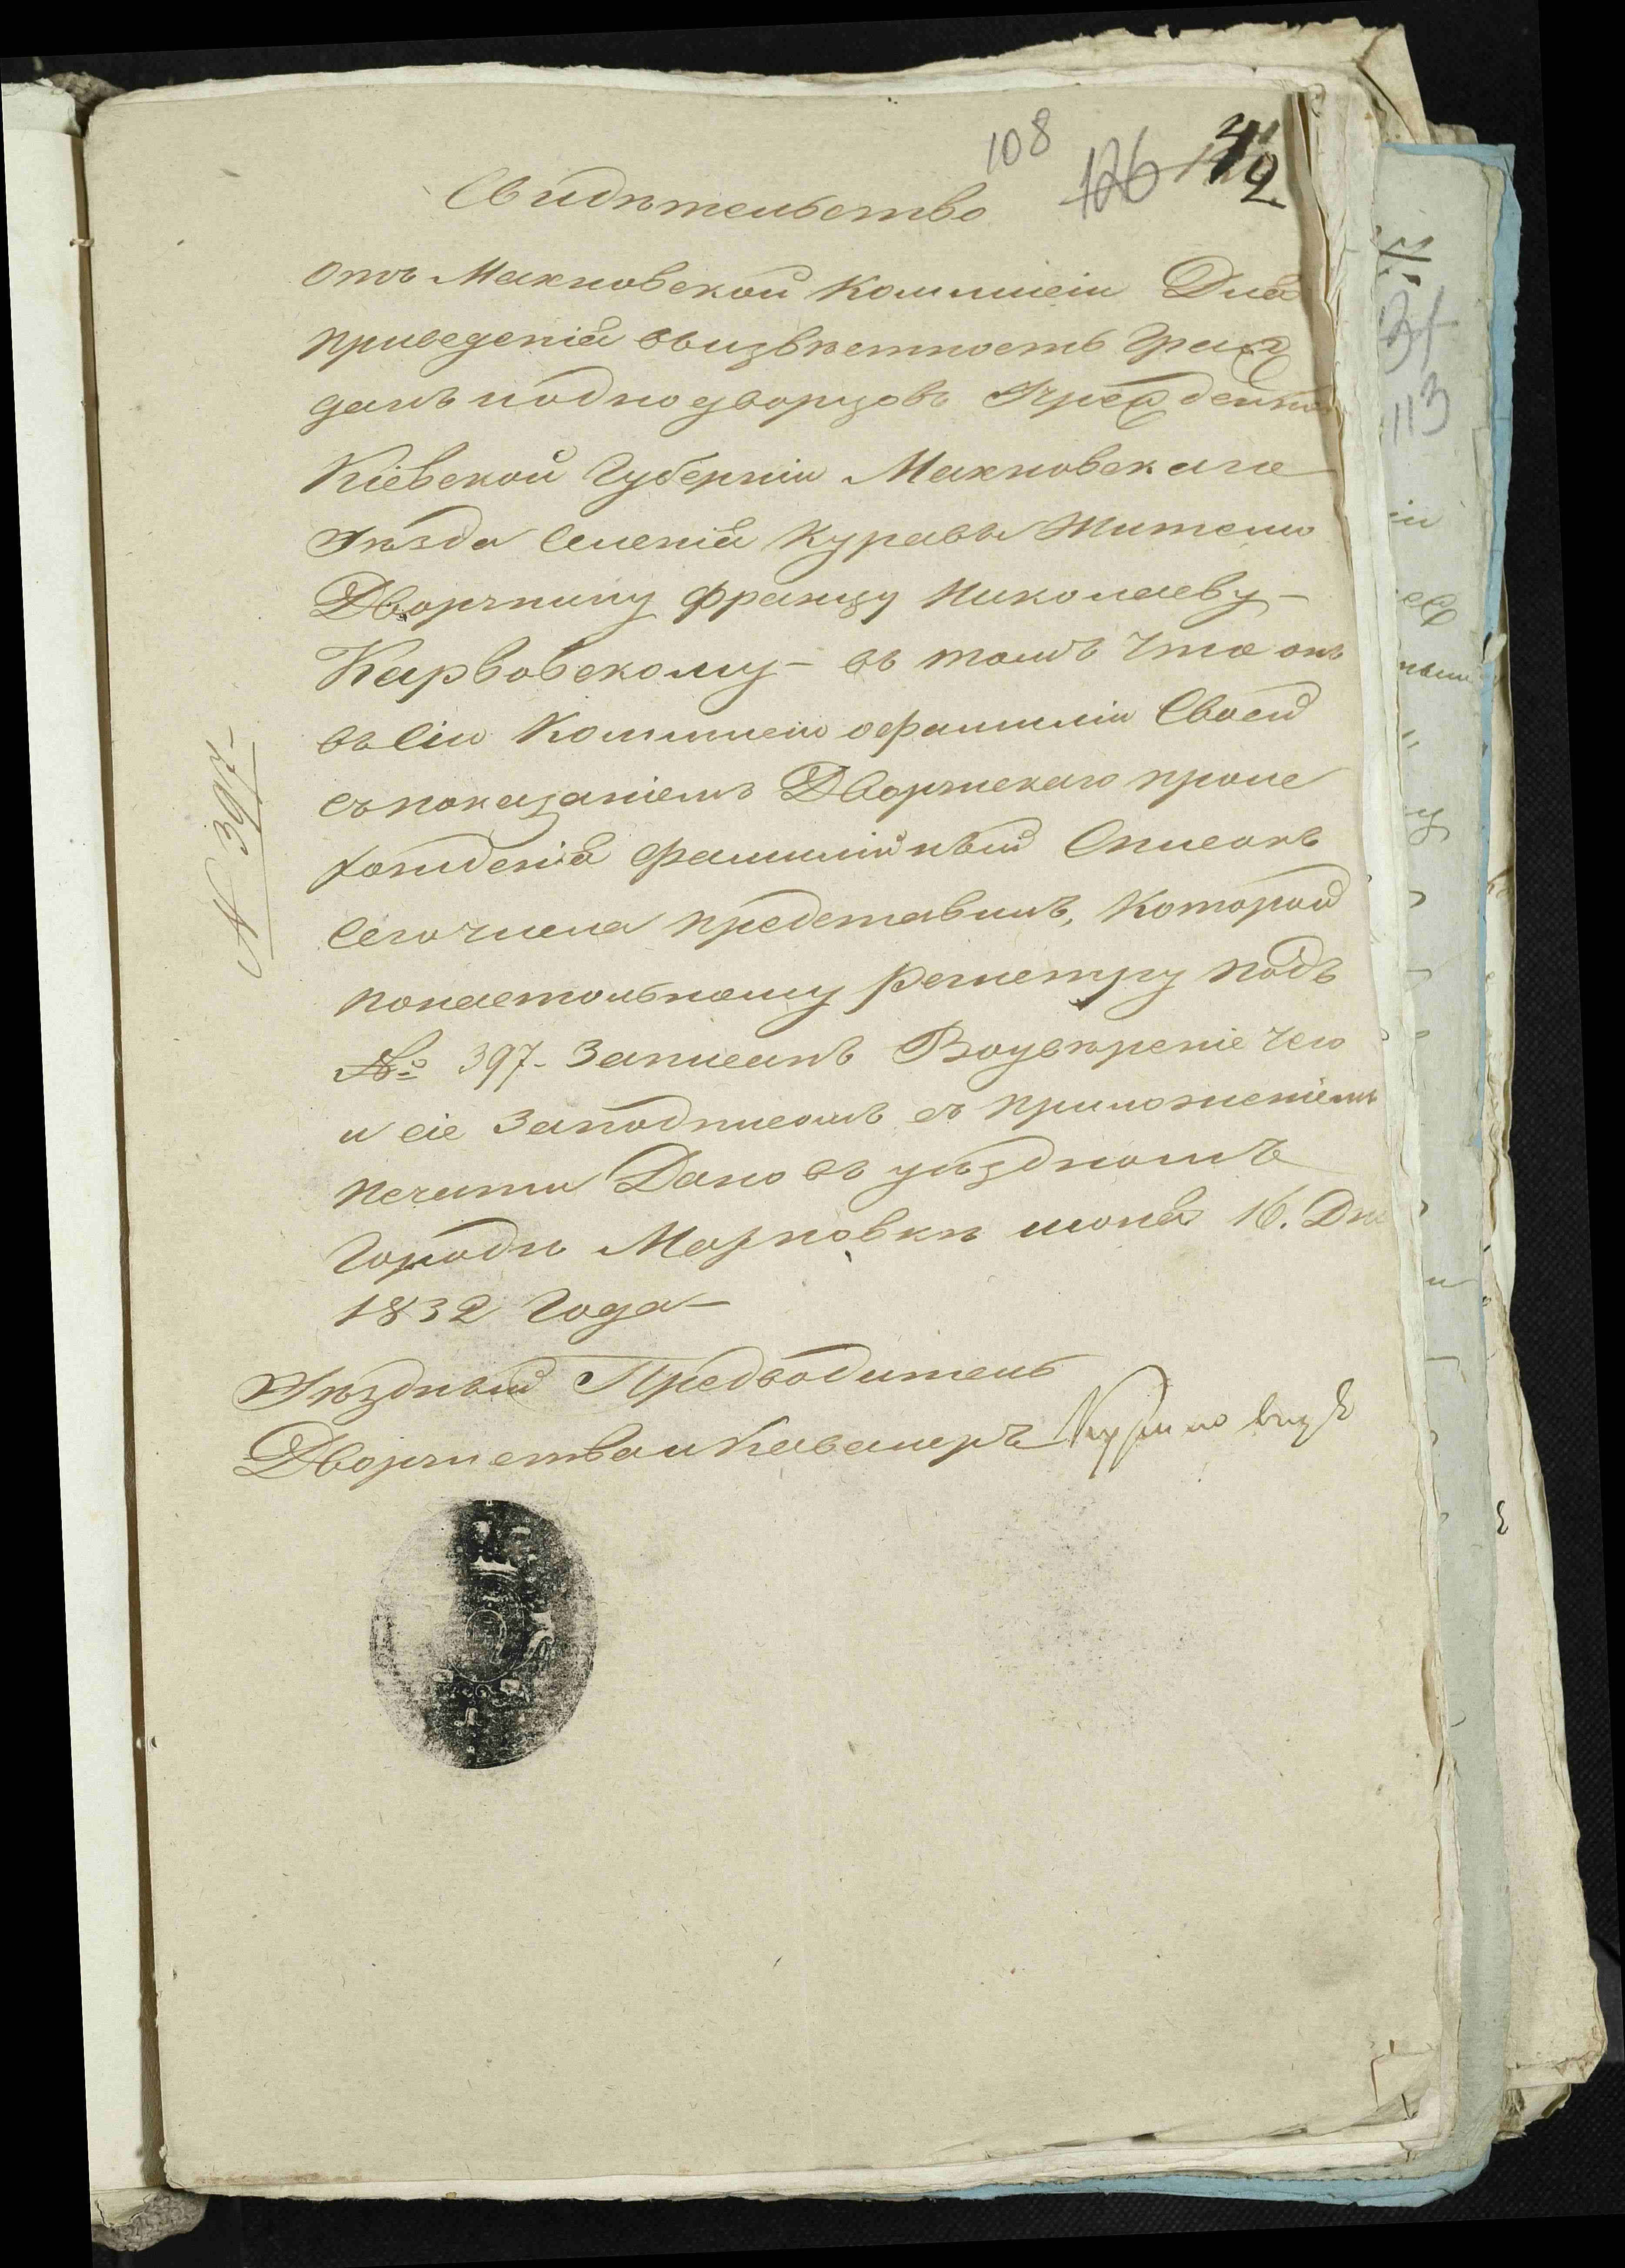 108 126 42
Свидѣтельство
Отъ Махновской Коммисіи Для
приведенія въ извѣстность Граж
данъ и однодворцовъ Учрежденно
Кіевской Губерніи Махновскаго
Уѣзда Селенія Куравы Жителю
Дворянину Францу Николаеву —
Карвовскому — въ томъ что онъ
въ Сію Коммисію о фамиліи Своей
съ показаніемъ Дворянскаго проис
хожденія фамилійный Списокъ
Сего числа представилъ, Которой
по настольному регистру подъ
№ 397 - Записанъ Въ увѣреніе чего
и сіе За подписомъ съ приложеніемъ
печати Дано въ уѣздномъ
Городѣ Махновкѣ июня 16. Дня
1832 Года —
Уѣздный Предводитель
Дворянства и Кавалеръ
N 397 -
31
113